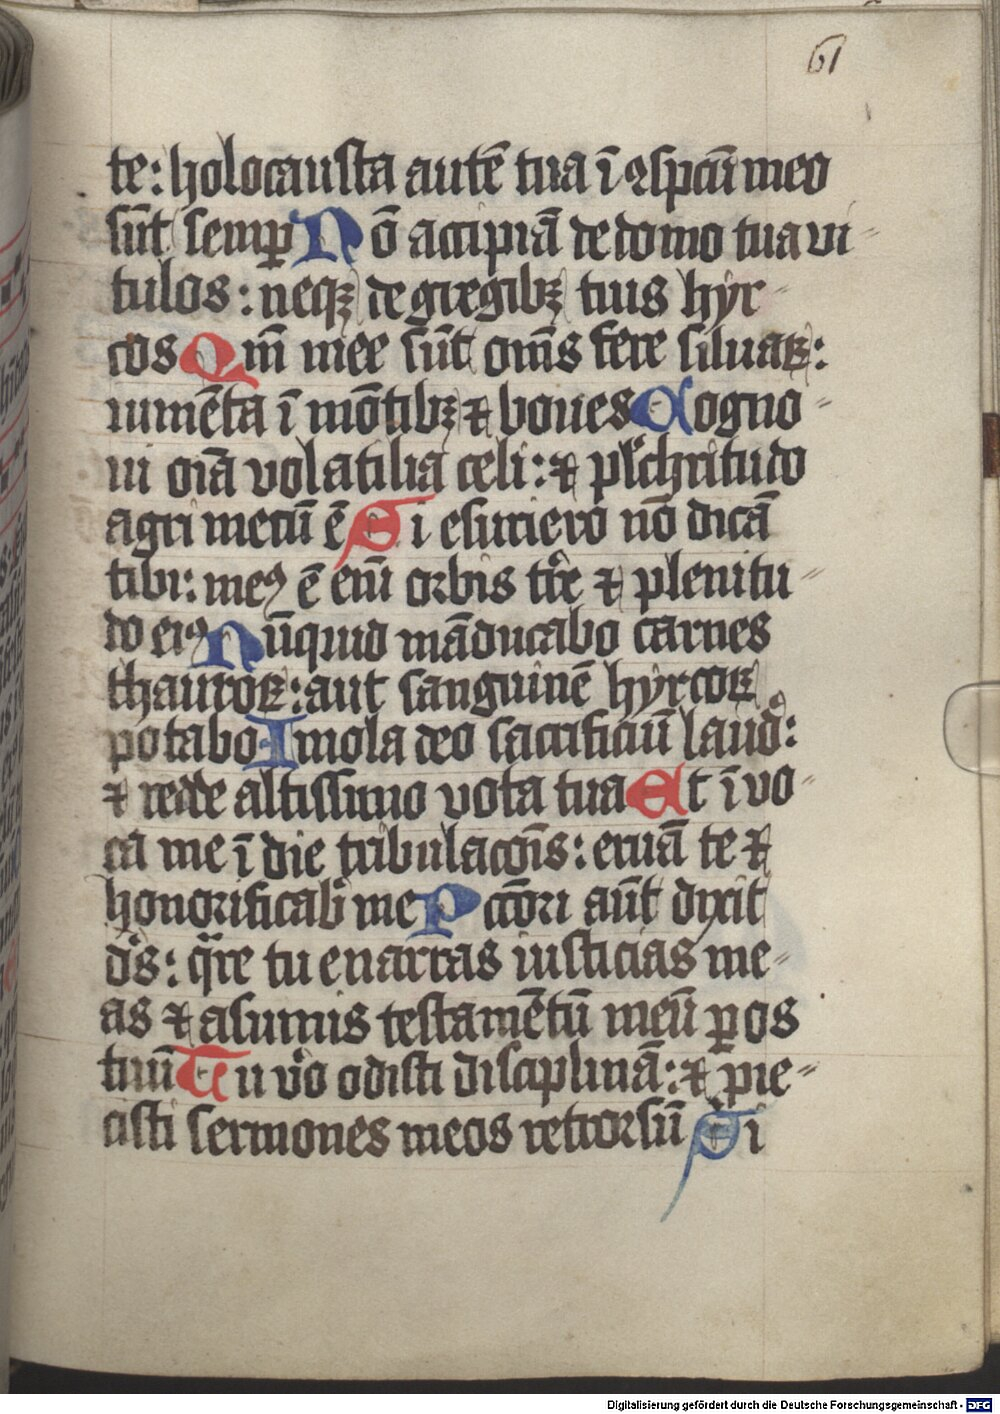 61
te: holocausta autē tua ī ꝯspcū meo
sūt semꝑ Nō accipiā de domo tua vi⸗
tulos: neqꝫ de gregibꝫ tuis hyr⸗
cos Qm̄ mee sūt om̄s fere siluaꝝ:
iumēta ī mōtibꝫ ⁊ boues Cogno⸗
ui oīa volatilia celi: ⁊ pl̓chritudo
agri mecū ē Si esuriero nō dicā
tibi: meꝰ ē eni̅ orbis tr̄e ⁊ plenitu⸗
do eiꝰ Nūquid māducabo carnes
thauroꝝ: aut sanguinē hyrcoꝝ
potabo Imola deo sacrificiū laud̓:
⁊ redde altissimo vota tua Et ī vo⸗
ca me ī die tribulacōis: eruā te ⁊
honorificab̓ me Pccōri aūt dyxit
d̓s: q̄re tu enarras iusticias me⸗
as ⁊ asumis testamētū meū ꝑ os
tuū Tu v̓o odisti disciplinā: ⁊ pie⸗
cisti sermones meos retrorsū Si
Digitalisierung gefördert durch die Deutsche Forschungsgemeinschaft - DFG